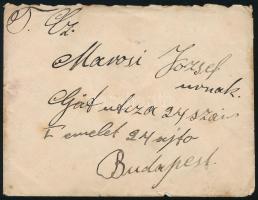 T. Cz.
Marosi József
urnak.
Gát utcza 24 szám
I emelet 24 ajto
Budapest.